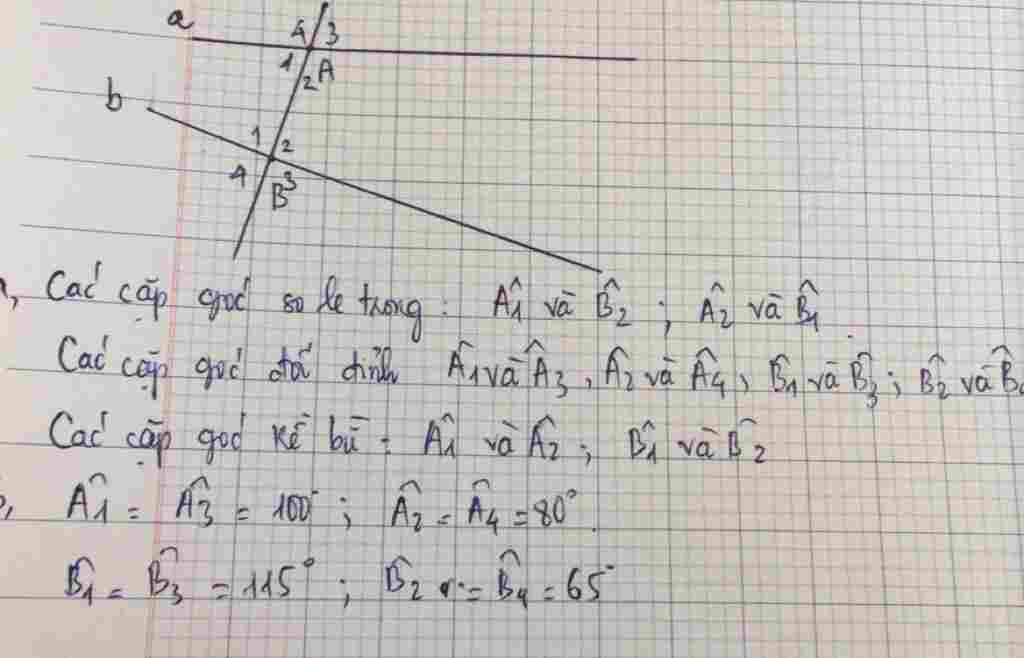 a
4 3
1 2 A
b
1 2
4 3
B
a, Các cặp góc so le trong : Â1 và B̂2 ; Â2 và B̂1
Các cặp góc đối đỉnh Â1 và Â3, Â2 và Â4, B̂1 và B̂3; B̂2 và B̂4
Các cặp góc kề bù : Â1 và Â2 ; B̂1 và B̂2
b, Â1 = Â3 = 100° ; Â2 = Â4 = 80°.
B̂1 = B̂3 = 115° ; B̂2 = B̂4 = 65°